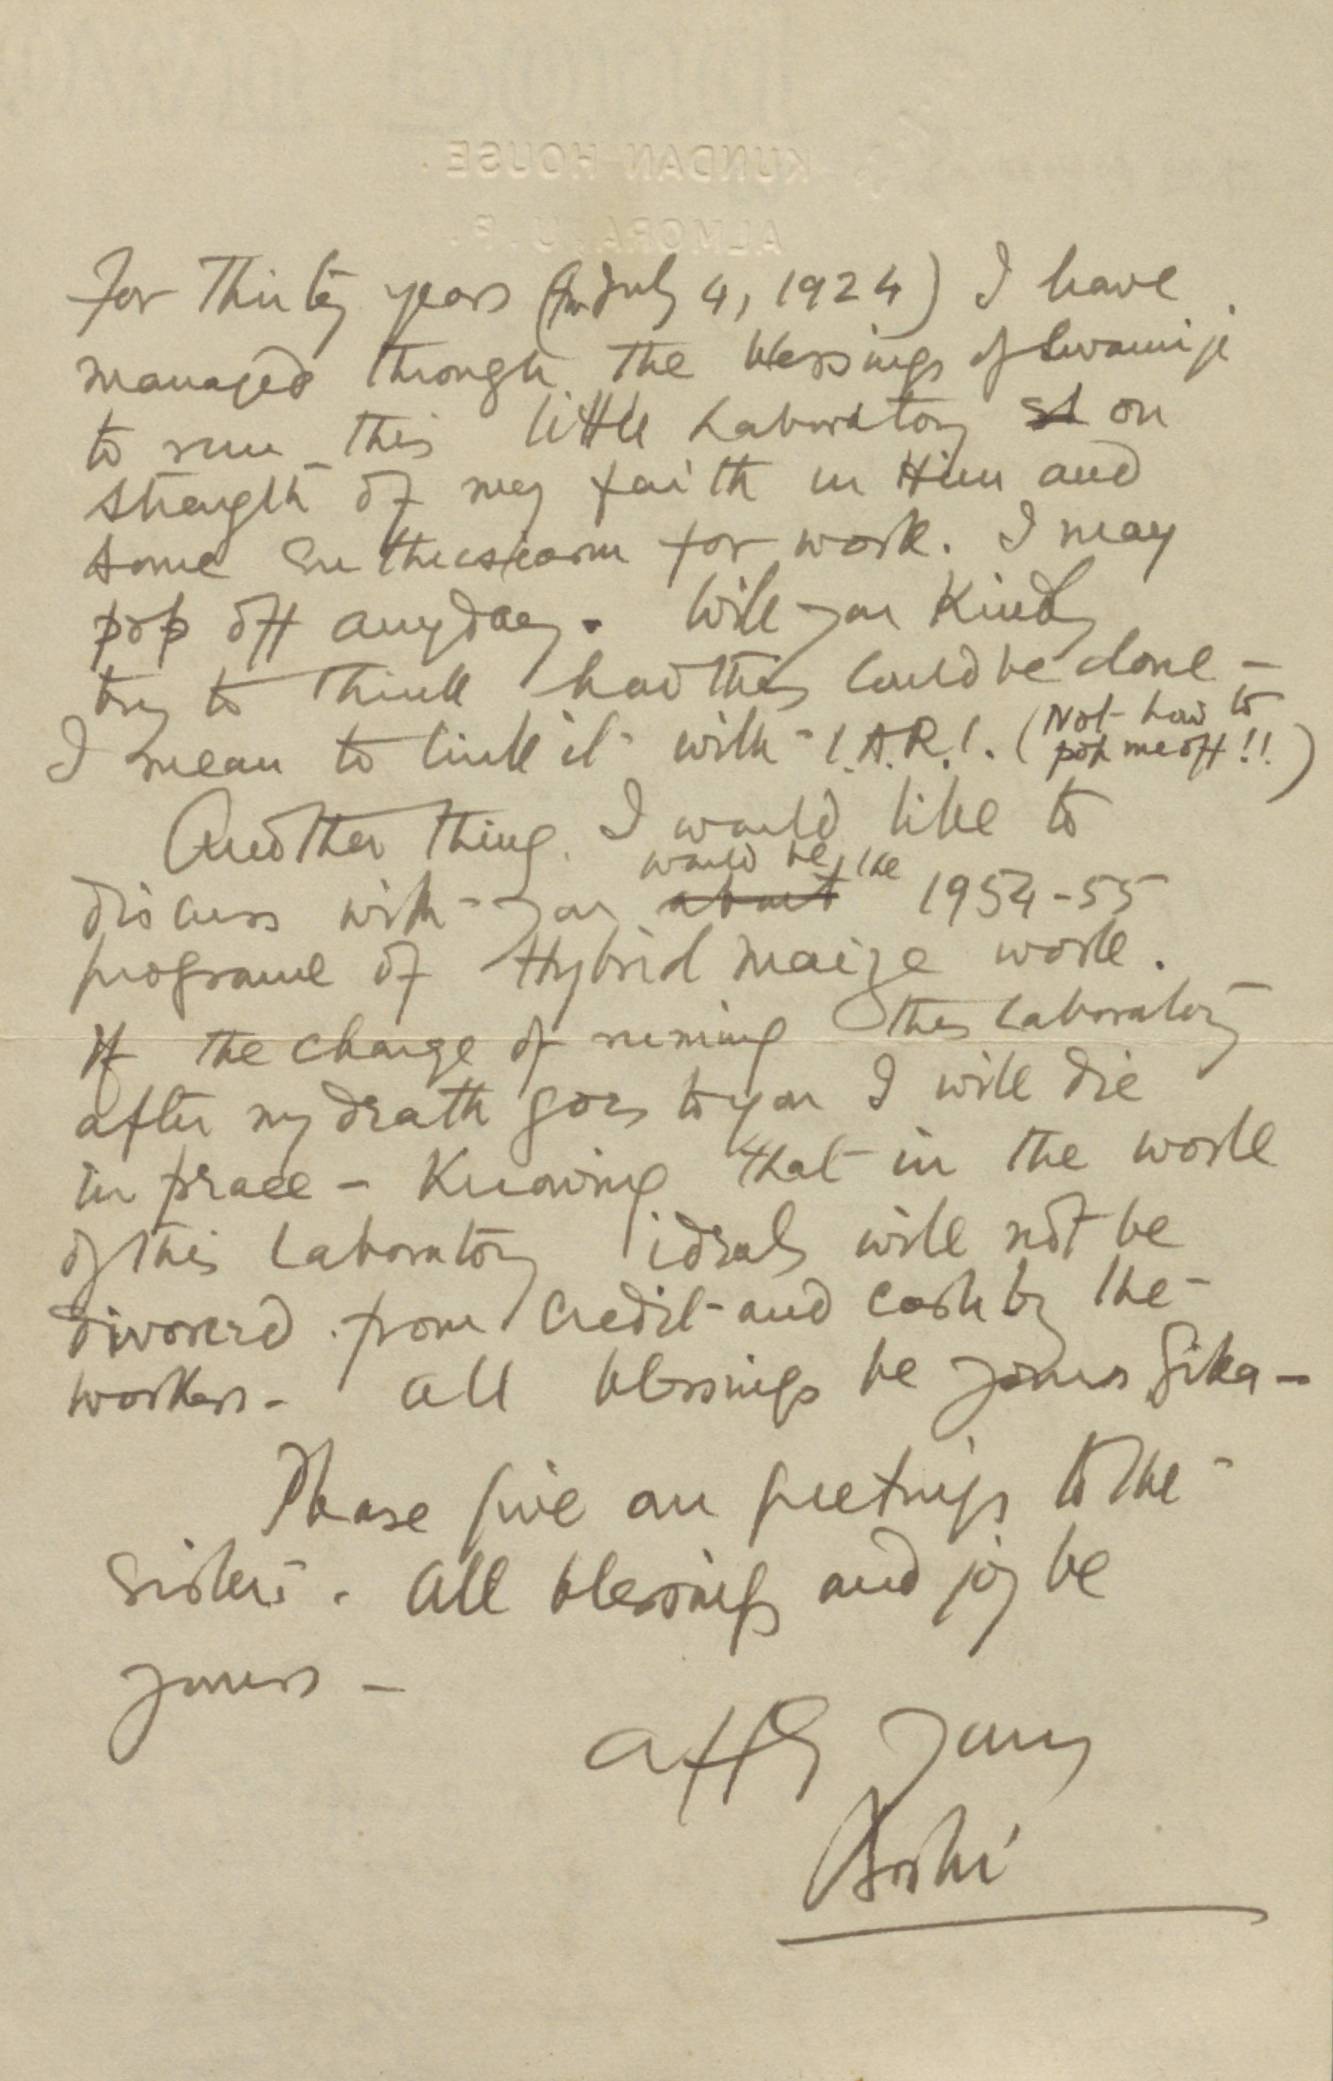 KUNDAN HOUSE.
ALMORA, U.P.
For Thirty years (from July 4, 1924) I have
managed through the blessings of Swamiji
to run this little Laboratory st on
strength of my faith in Him and
some enthusiasm for work. I may
pop off anyday. Will you Kindly
try to think how this could be done –
I mean to link it with I.A.R.I. (Not how to
pop me off!!)
Another thing I would like to
discuss with you about would be the 1954-55
programe of Hybrid maize work.
If the charge of running this Laboratory
after my death goes to you I will die
in peace – Knowing that in the work
of this Laboratory ideals will not be
divorced from credit and cash by the
workers – All blessings be yours Sika –
Please give our greetings to the
Sisters. All blessings and joy be
yours –
affly yours
Boshi